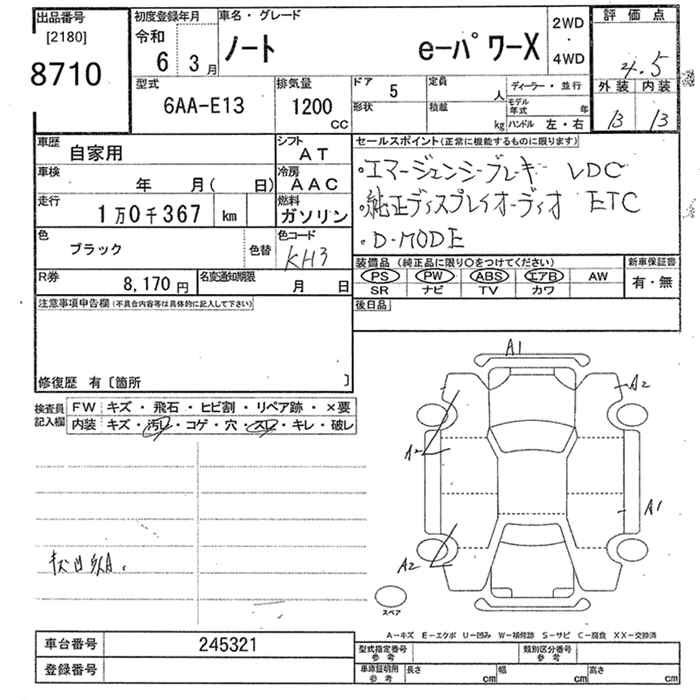 出品番号
[2180]
8710
初度登録年月
令和
6 3月
車名・グレード
ノート e-パワーX
2WD
・
4WD
評価点
4.5
外装 内装
B B
型式
6AA-E13
排気量
1200
CC
ドア 5
形状
定員 人
積載 kg
ディーラー・並行
モデル年式 年
ハンドル 左・右
車歴
自家用
シフト
AT
車検
年 月( 日)
冷房
AAC
走行
1万0千367 km
燃料
ガソリン
色
ブラック
色替
色コード
KH3
R券
8,170円
名変通知期限
月 日
セールスポイント(正常に機能するものに限ります)
・エマージェンシーブレーキ VDC
・純正ディスプレイオーディオ ETC
・D-MODE
装備品 (純正品に限り○をつけてください)
PS PW ABS エアB AW
SR ナビ TV カワ
新車保証書
有・無
後日品
注意事項申告欄(不具合内容等は具体的に記入して下さい)
修復歴 有〔箇所 〕
検査員記入欄
FW キズ・飛石・ヒビ割・リペア跡・×要
内装 キズ・汚レ・コゲ・穴・スレ・キレ・破レ
A1
A2
A2
A1
A2
スペア
A-キズ E-エクボ U-凹み W-補修跡 S-サビ C-腐食 XX-交換済
車台番号 245321
登録番号
型式指定番号 参考
類別区分番号 参考
車庫証明用 参考
長さ cm 幅 cm 高さ cm